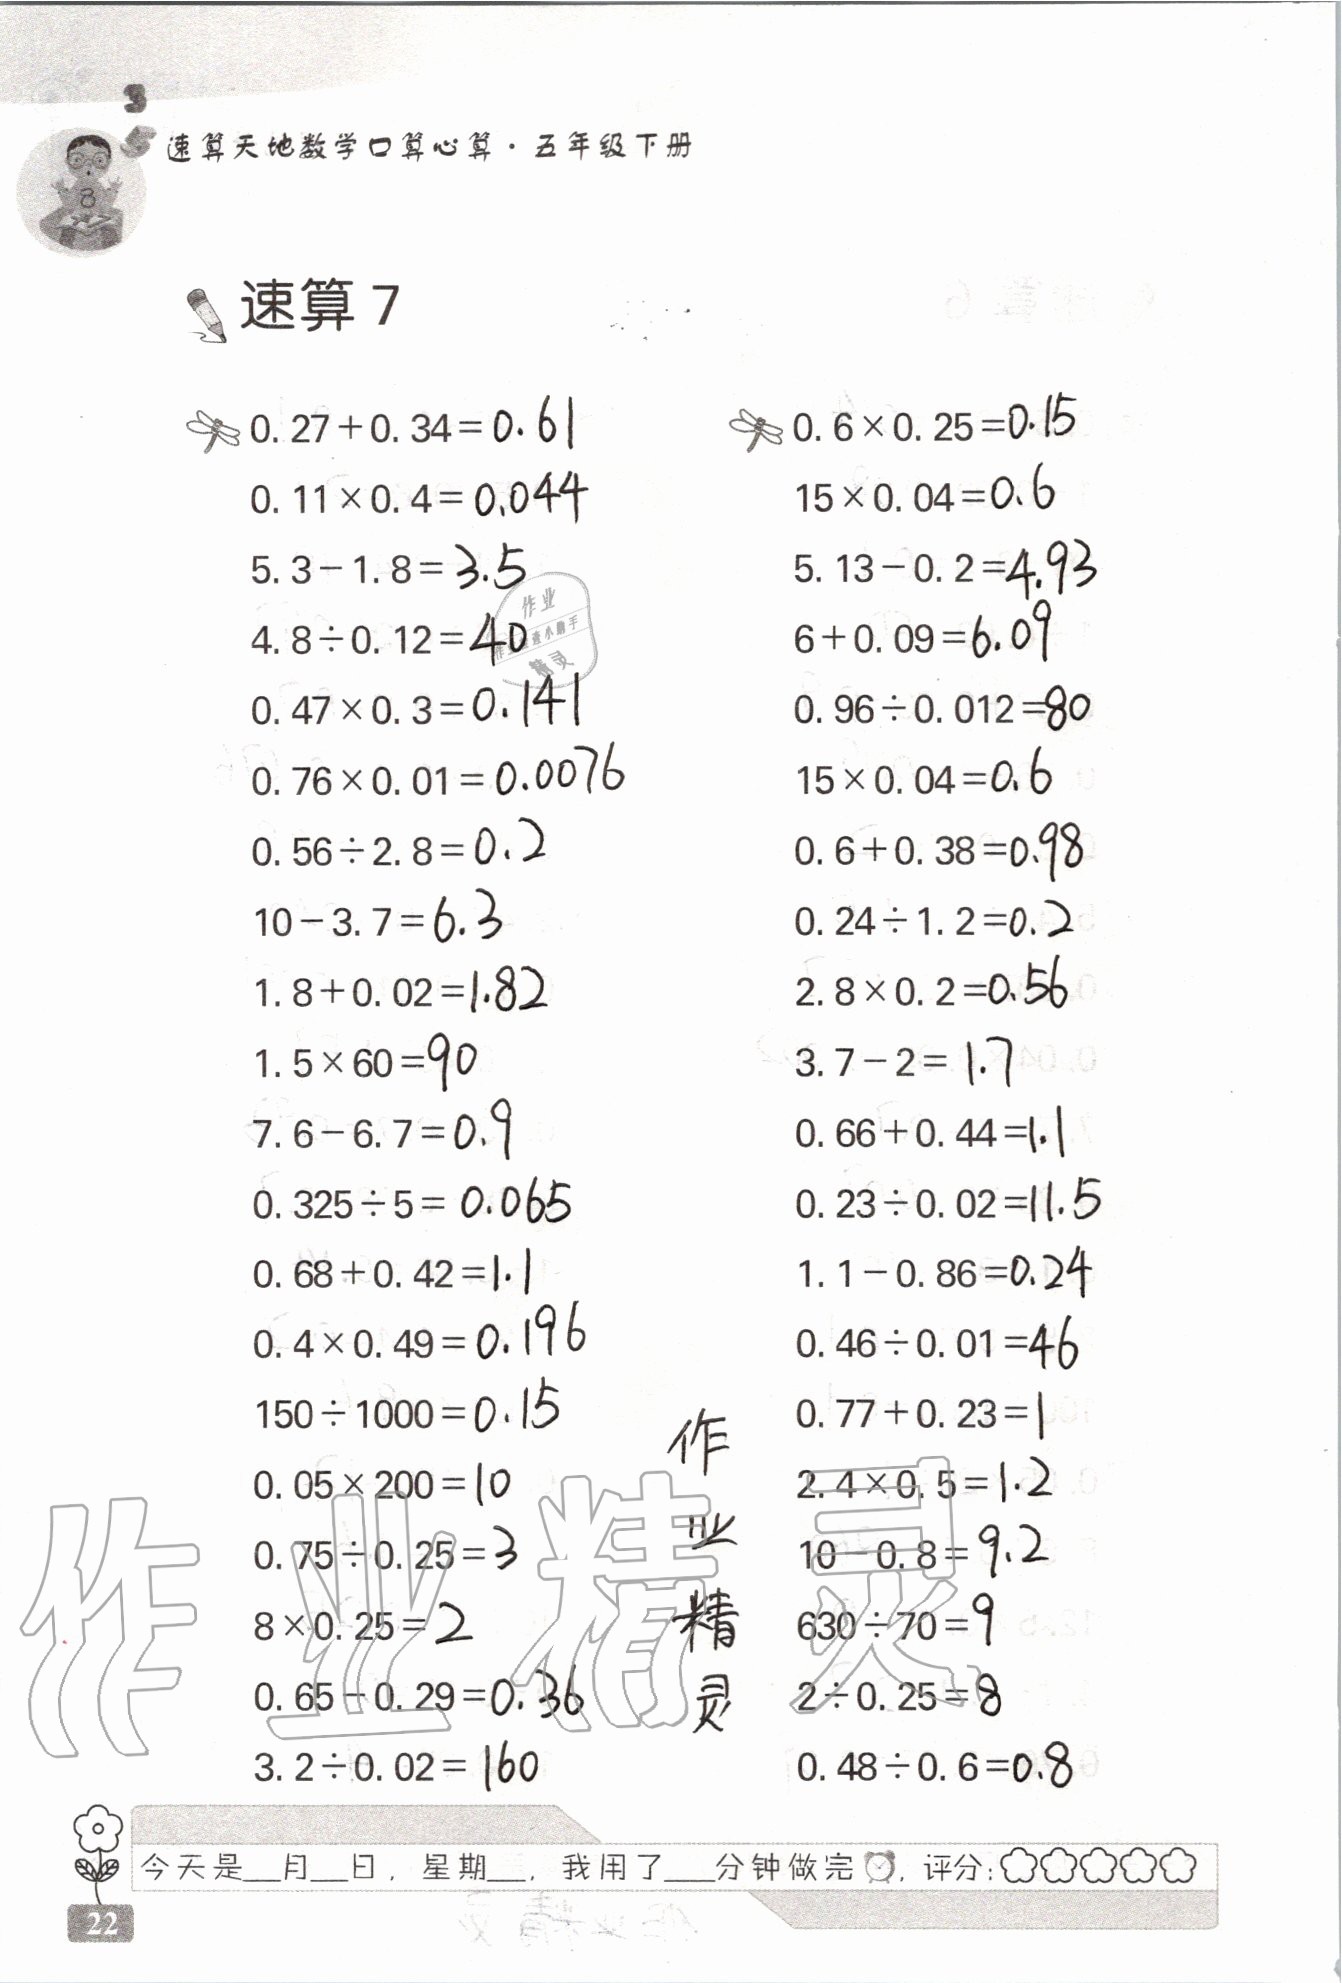 速算天地数学口算心算·五年级下册
8
速算 7
0.27+0.34=0.61
0.11×0.4=0.044
5.3-1.8=3.5
4.8÷0.12=40
0.47×0.3=0.141
0.76×0.01=0.0076
0.56÷2.8=0.2
10-3.7=6.3
1.8+0.02=1.82
1.5×60=90
7.6-6.7=0.9
0.325÷5=0.065
0.68+0.42=1.1
0.4×0.49=0.196
150÷1000=0.15
0.05×200=10
0.75÷0.25=3
8×0.25=2
0.65-0.29=0.36
3.2÷0.02=160
0.6×0.25=0.15
15×0.04=0.6
5.13-0.2=4.93
6+0.09=6.09
0.96÷0.012=80
15×0.04=0.6
0.6+0.38=0.98
0.24÷1.2=0.2
2.8×0.2=0.56
3.7-2=1.7
0.66+0.44=1.1
0.23÷0.02=11.5
1.1-0.86=0.24
0.46÷0.01=46
0.77+0.23=1
2.4×0.5=1.2
10-0.8=9.2
630÷70=9
2÷0.25=8
0.48÷0.6=0.8
作业
精灵
作业精灵
作业精灵
今天是__月__日，星期__，我用了___分钟做完，评分：
22